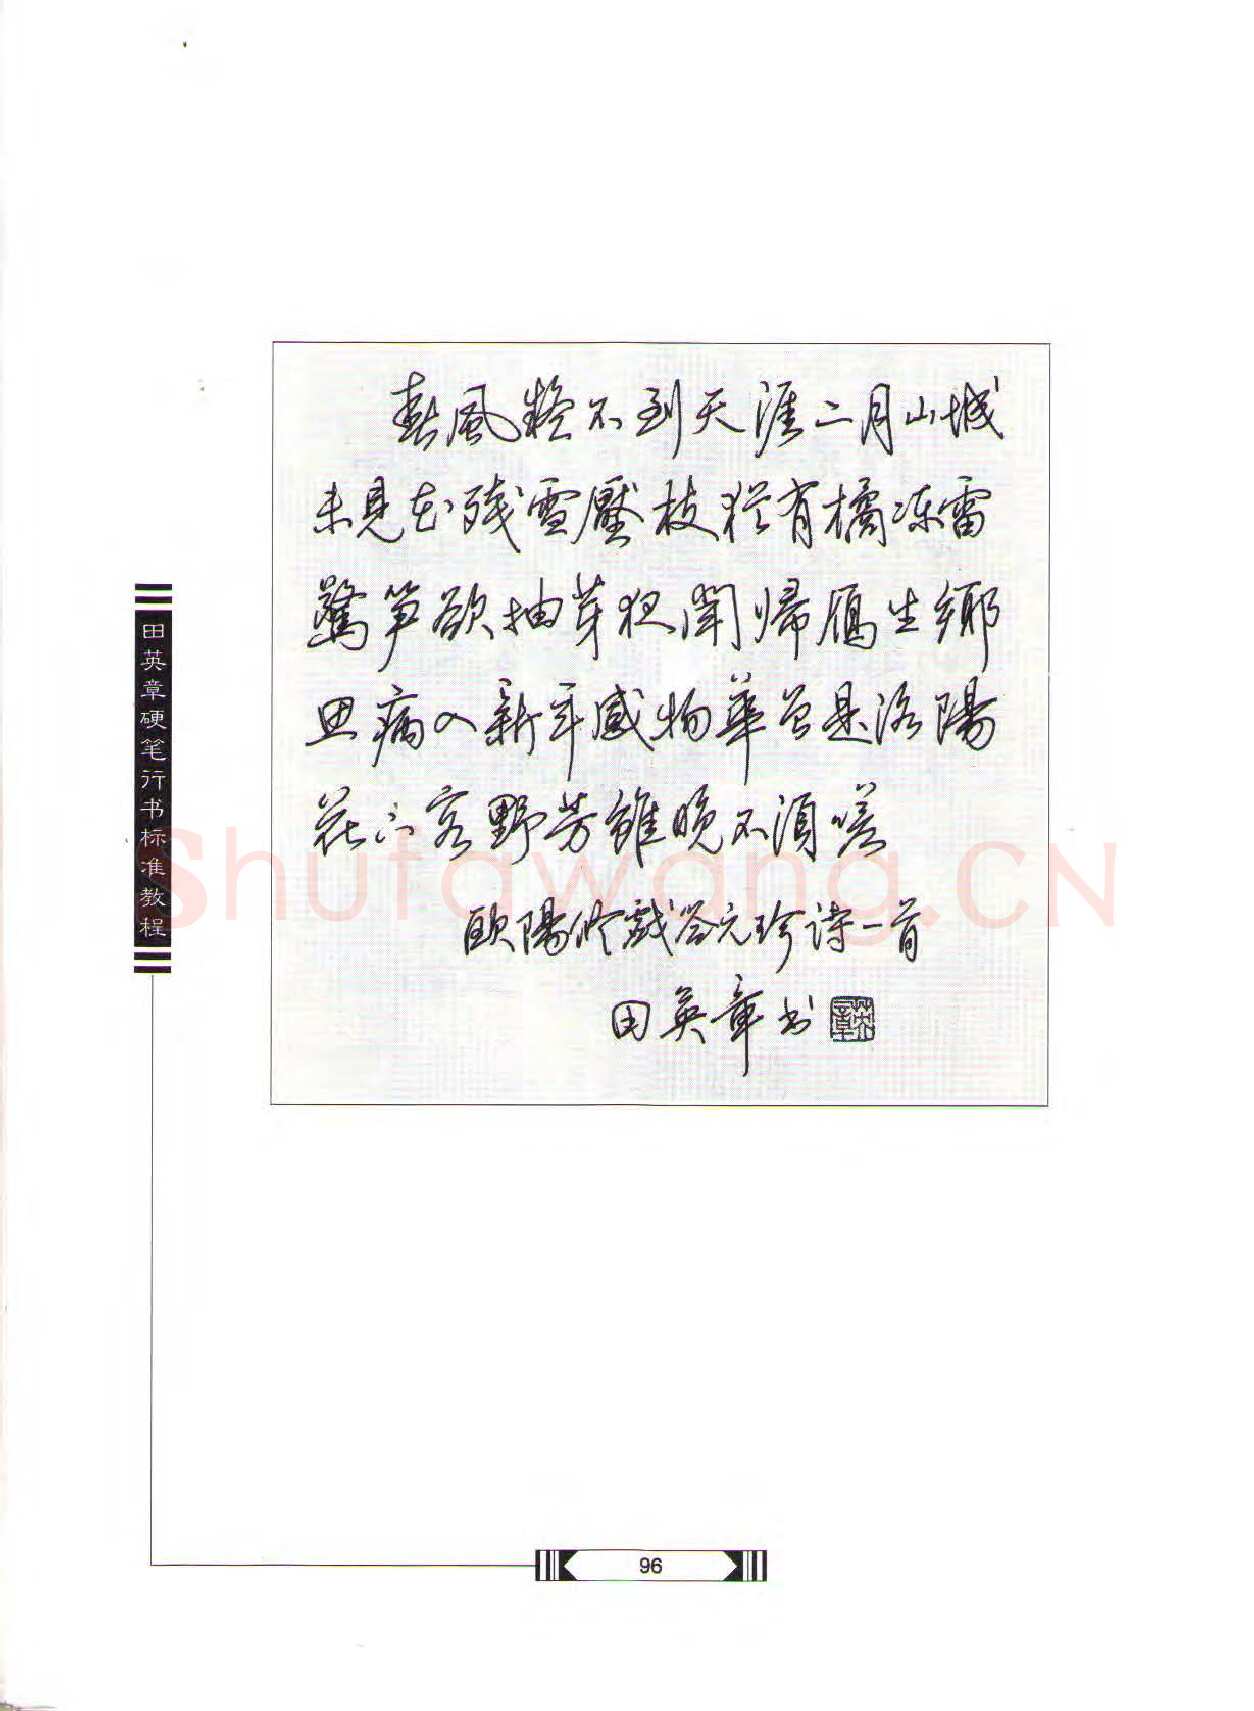 春風疑不到天涯二月山城
未見花残雪壓枝猶有橘冻雷
驚笋欲抽芽夜聞歸鴈生鄉
思病入新年感物華曾是洛陽
花下客野芳雖晚不須嗟
歐陽修戲答元珍诗一首
田英章书
英章
田英章硬笔行书标准教程
Shufawang.CN
96